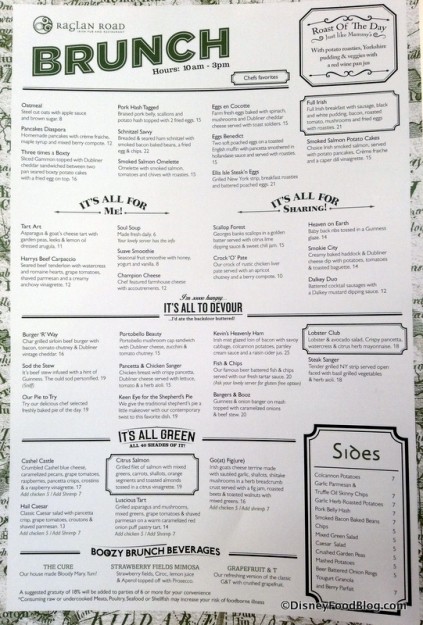 RAGLAN ROAD
BRUNCH
Hours: 10am - 3pm
Roast Of The Day
Just like Mammy's
With potato roasties, Yorkshire
pudding & veggies with a
red wine pan jus
Chefs favorites
Oatmeal
Steel cut oats with apple sauce
and brown sugar. 8
Pancakes Diaspora
Homemade pancakes with crème fraiche,
maple syrup and mixed berry compote. 13
Three times a Booty
Sliced Gammon topped with Dubliner
cheddar sandwiched between two
pan seared boxty potato cakes
with a fried egg on top. 16
Pork Hash Tagged
Braised pork belly, scallions and
potato hash topped with 2 fried eggs. 15
Schnitzel Savvy
Breaded & seared ham schnitzel with
smoked bacon baked beans, a fried
egg & chips. 22
Smoked Salmon Omelette
Omelette with smoked salmon,
tomatoes and chives with roasties. 15
Eggs en Cocotte
Farm fresh eggs baked with spinach,
mushrooms and Dubliner cheddar
cheese served with toast soldiers. 15
Eggs Benedict
Two soft poached egg on a toasted
English muffin with pancetta smothered in
hollandaise sauce and served with roasties.
15
Ella Isle Steak'n Eggs
Grilled New York strip, breakfast roasties
and battered poached eggs. 21
Full Irish
Full Irish breakfast with sausage, black
and white pudding, bacon, roasted
tomato, mushrooms and fried egg
with roasties. 21
Smoked Salmon Potato Cakes
Choice Irish smoked salmon, served
with potato pancakes, Crème fraiche
and a caper dill vinaigrette. 15
IT'S ALL FOR
Me!
Tart Ars
Asparagus & goat's cheese tart with
garden peas, leeks & lemon oil
dressed arugula. 11
Harrys Beef Carpaccio
Seared beef tenderloin with watercress
and romaine hearts, grape tomatoes,
shaved parmesan and a creamy
anchovy vinaigrette. 12
Soul Soup
Made fresh daily. 6
Your lovely server has the info
Suave Smoothie
Seasonal fruit smoothie with honey,
yogurt and vanilla. 8
Champion Cheese
Chef featured farmhouse cheese
with accoutrements. 12
IT'S ALL FOR
Sharing!
Scallop Forest
Georges banks scallops in a golden
batter served with citrus lime
dipping sauce & sweet chili jam. 15
Crock 'O' Pate
Our crock of rustic chicken liver
pate served with an apricot
chutney and a berry compote. 10
Heaven on Earth
Baby back ribs tossed in a Guinness
glaze. 14
Smokie City
Creamy baked haddock & Dubliner
cheese dip with potatoes, tomatoes
& toasted baguette. 14
Dalkey Duo
Battered cocktail sausages with
a Dalkey mustard dipping sauce. 12
I'm sooo hungry...
IT'S ALL TO DEVOUR
...I'd ate the backdoor buttered!
Burger 'N' Way
Char grilled sirloin beef burger with
bacon, tomato chutney & Dubliner
vintage cheddar. 16
Sod the Stew
It's beef stew infused with a hint of
Guinness. The auld sod personified. 19
(Sod!)
Our Pie to Try
Try our delicious chef selected
freshly baked pie of the day. 19
Portobella Beauty
Portobello mushroom cap sandwich
with Dubliner cheese, zucchini &
tomato chutney. 15
Pancetta & Chicken Sanger
Chicken breast with crispy pancetta,
Dubliner cheese served with lettuce,
tomato & a herb aioli. 15
Keen Eye for the Shepherd's Pie
We give the traditional shepherd's pie a
little makeover with our contemporary
twist to this favorite dish. 19
Kevin's Heavenly Ham
Irish mist glazed loin of bacon with savoy
cabbage, creamed potatoes, parsley
cream sauce and a raisin cider jus. 25
Fish & Chips
Our famous beer battered fish & chips
served with our fresh tartar sauce. 20
(Ask your lovely server for gluten free option)
Bangers & Boos
Guinness & onion banger on mash
topped with caramelized onions
& beef stew. 20
Lobster Club
Lobster & avocado salad, Crispy pancetta,
watercress & citrus herb mayonnaise. 18
Steak Sanger
Tender grilled NY strip served open
faced with basil grilled vegetables
& herb aioli. 18
IT'S ALL GREEN
ALL 40 SHADES OF IT!
Cashel Castle
Crumbled Cashel blue cheese,
caramelized pecans, grape tomatoes,
raspberries, pancetta crisps, crostino
& a raspberry vinaigrette. 17
Add chicken 5 / Add Shrimp 7
Hail Caesar
Classic Caesar salad with pancetta
crisp, grape tomatoes, croutons &
shaved parmesan. 13
Add chicken 5 / Add Shrimp 7
Citrus Salmon
Grilled filet of salmon with mixed
greens, carrots, shallots, orange
segments and toasted almonds
tossed in a citrus vinaigrette. 19
Luscious Tart
Grilled asparagus and mushrooms,
mixed greens, grape tomatoes & shaved
parmesan on a warm caramelized red
onion puff pastry tart. 14
Add chicken 5 / Add Shrimp 7
Go(at) Fig(ure)
Irish goats cheese terrine made
with sautéed garlic, shallots, shiitake
mushrooms in a herb breadcrumb
crust served with a fig jam, roasted
beets & toasted walnuts with
mixed greens. 16
Add chicken 5 / Add Shrimp 7
Sides
Colcannon Potatoes 7
Garlic Parmesan &
Truffle Oil Skinny Chips 7
Garlic Herb Roasted Potatoes 7
Pork Belly Hash 7
Smoked Bacon Baked Beans 7
Chips 5
Mixed Green Salad 5
Caesar Salad 5
Crushed Garden Peas 5
Mashed Potatoes 5
Beer Battered Onion Rings 5
Yougurt Granola
and Berry Parfait 5
BOOZY BRUNCH BEVERAGES
THE CURE
Our house made Bloody Mary, fun!
STRAWBERRY FIELDS MIMOSA
Strawberry fields, Citroc, lemon juice
& Aperol topped off with Prosecco.
GRAPEFRUIT & T
Our refreshing version of the classic
G&T with crushed grapefruit.
A suggested gratuity of 18% will be added to parties of 6 or more for your convenience.
*Consuming raw or undercooked Meats, Poultry, Seafood or Shellfish may increase your risk of foodborne illness
©DisneyFoodBlog.com
KILDARE